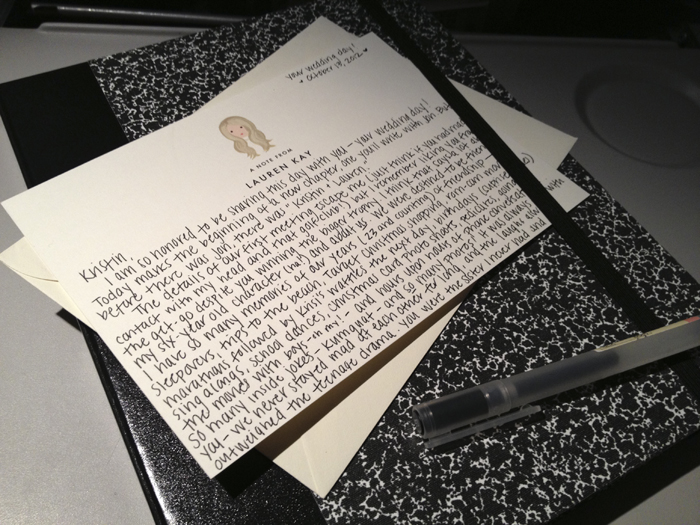 your wedding day!
October 19, 2012
A NOTE FROM
LAUREN KAY
Kristin,
I am so honored to be sharing this day with you - your wedding day!
Today marks the beginning of a new chapter, one you'll write with Jon. But
before there was Jon, there was "Kristin & Lauren,"
The details of our first meeting escape me (just think if you hadn't made
contact with my head and that gold club!) but I remember liking you from
the get-go despite you winning the bigger trophy. I think that says a lot about
my six-year-old character (ha!) and about us. We were destined to be friends.
I have so many memories of our years (23 and counting) of friendship -
sleepovers, trips to the beach, Target Christmas shopping, rom-com movie
marathons followed by Krisit waffles the next day, birthdays
sing alongs, school dances, Christmas card photo shoots,
the movies with boys - oh my! - and hours upon hours of phone
so many inside jokes - and so many photos! It was always
you - we never stayed mad at each other for long and the laughs always
outweighed the teenage drama. You were the sister I never had and